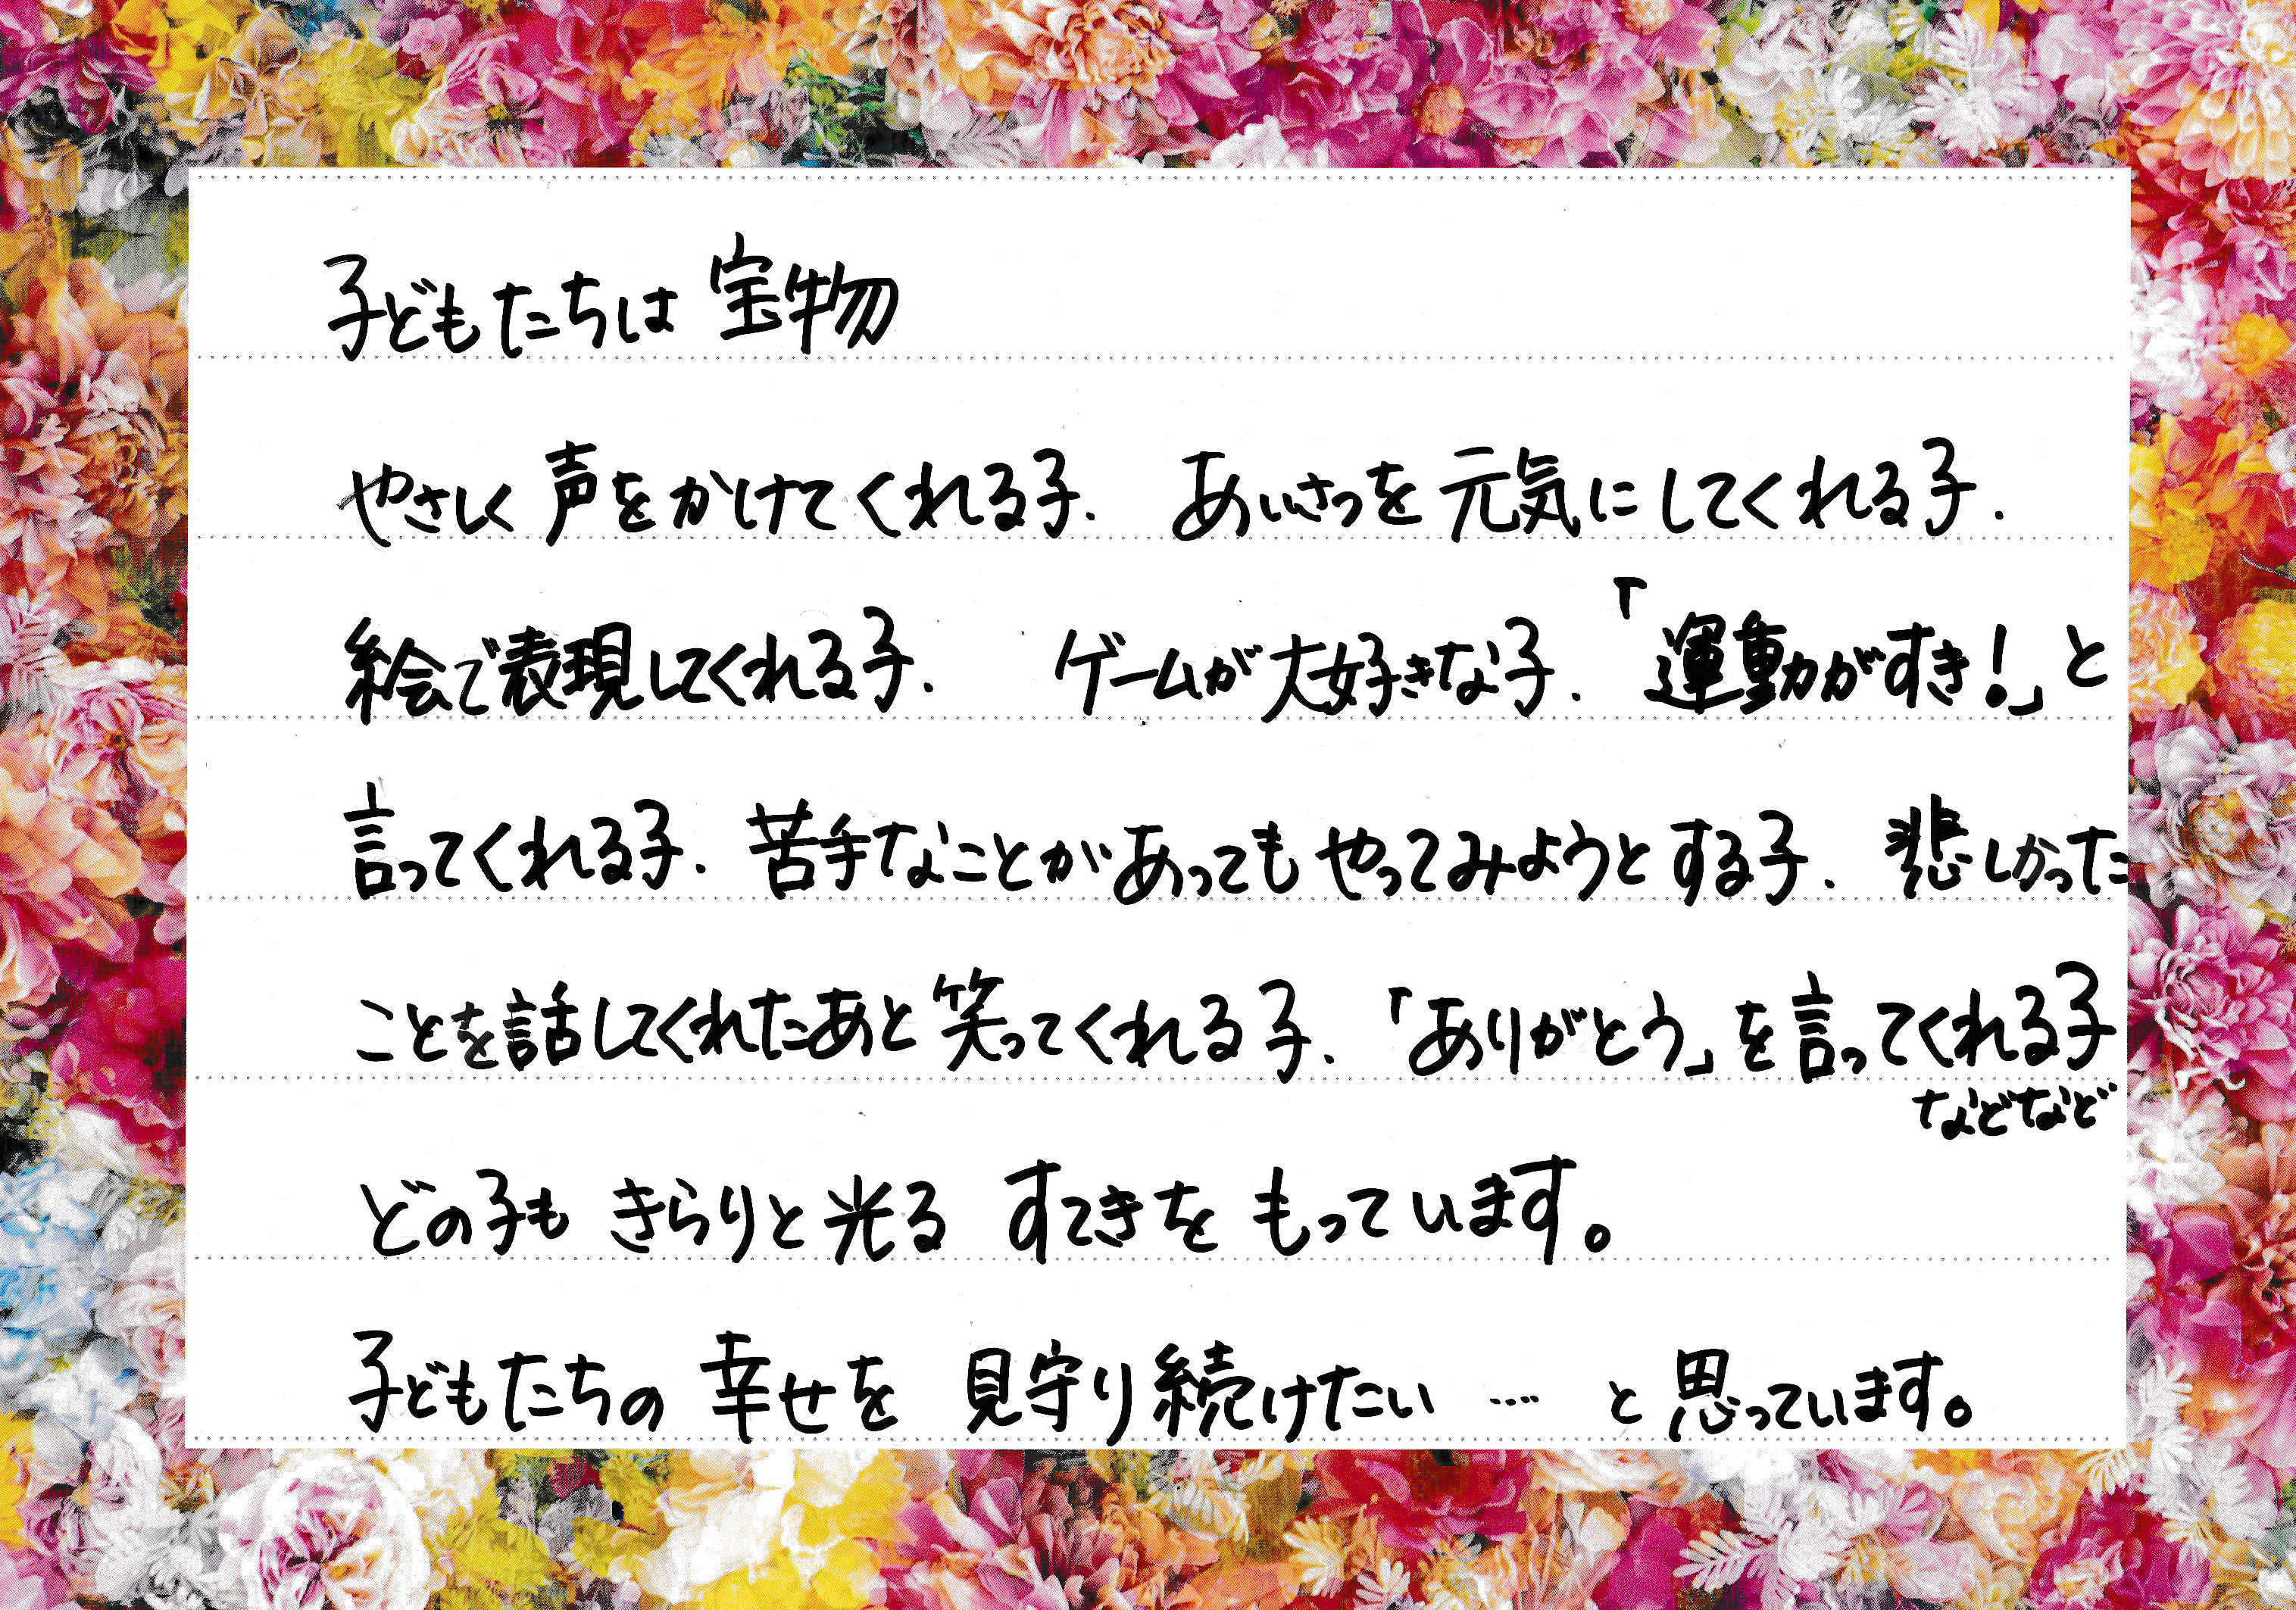 子どもたちは 宝物
やさしく 声をかけてくれる子. あいさつを元気にしてくれる子.
絵で表現してくれる子. ゲームが大好きな子. 「運動がすき!」と
言ってくれる子. 苦手なことがあっても やってみようとする子. 悲しかった
ことを話してくれたあと笑ってくれる子. 「ありがとう」を言ってくれる子
などなど
どの子も きらりと光る すてきを もっています。
子どもたちの 幸せを 見守り続けたい …. と思っています。